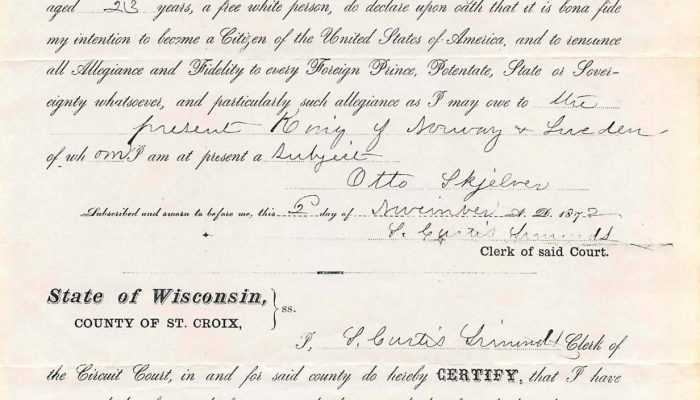 aged 23 years, a free white person, do declare upon oath that it is bona fide
my intention to become a Citizen of the United States of America, and to renounce
all Allegiance and Fidelity to every Foreign Prince, Potentate, State or Sover-
eignty whatsoever, and particularly such allegiance as I may owe to the
present King of Norway & Sweden
of whom I am at present a Subject
Otto Skjelver
Subscribed and sworn to before me, this 2 day of November A. D. 1872
S. Curtis
Clerk of said Court.
State of Wisconsin,
COUNTY OF ST. CROIX, } ss.
I, S. Curtis Clerk of
the Circuit Court, in and for said county do hereby CERTIFY, that I have